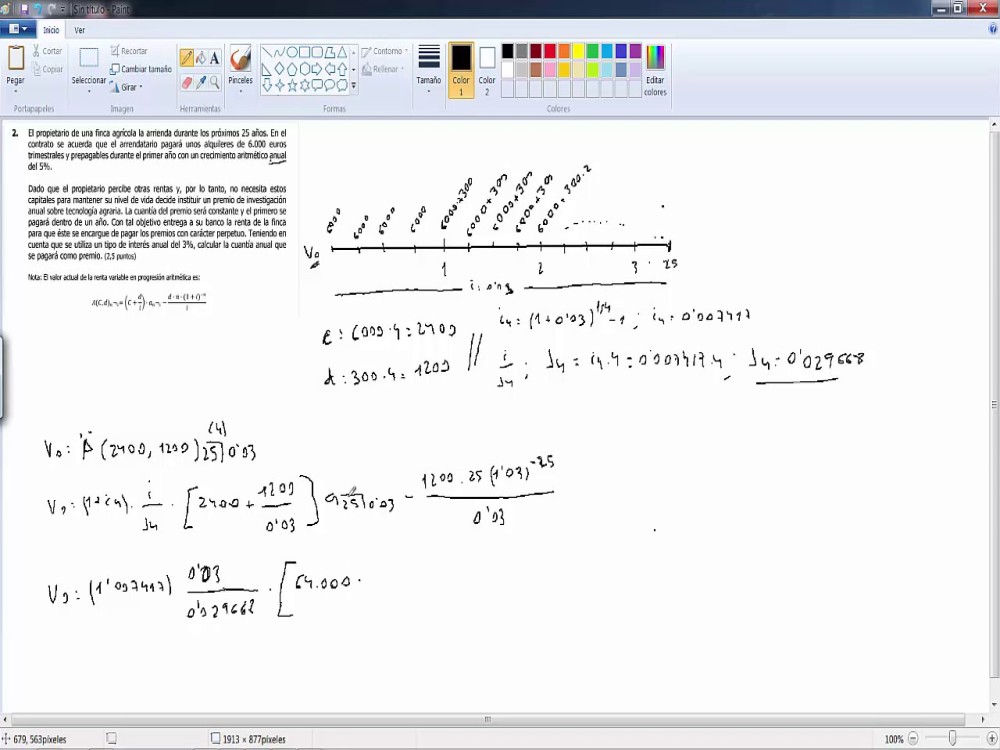 Sin título - Paint
Inicio Ver
Pegar
Cortar
Copiar
Portapapeles
Seleccionar
Recortar
Cambiar tamaño
Girar
Imagen
A
Herramientas
Pinceles
Contorno
Rellenar
Formas
Tamaño
Color 1
Color 2
Editar colores
Colores
2. El propietario de una finca agrícola la arrienda durante los próximos 25 años. En el
contrato se acuerda que el arrendatario pagará unos alquileres de 6.000 euros
trimestrales y prepagables durante el primer año con un crecimiento aritmético anual
del 5%.
Dado que el propietario percibe otras rentas y, por lo tanto, no necesita estos
capitales para mantener su nivel de vida decide instituir un premio de investigación
anual sobre tecnología agraria. La cuantía del premio será constante y el primero se
pagará dentro de un año. Con tal objetivo entrega a su banco la renta de la finca
para que éste se encargue de pagar los premios con carácter perpetuo. Teniendo en
cuenta que se utiliza un tipo de interés anual del 3%, calcular la cuantía anual que
se pagará como premio. (2,5 puntos)
Nota: El valor actual de la renta variable en progresión aritmética es:
6000 6000 6000 6000 6000+300 6000+300 6000+300 6000+300 6000+300.2 ......
V0
1 2 3 25
i: 0'03
c: 6000.4 = 2400 // i4 = (1+0'03)^1/4 -1 ; i4 = 0'007417
d: 300.4 = 1200 i/J4 ; J4 = i4.4 = 0'007417.4 ; J4 = 0'029668
V0: Ä (2400, 1200) 25⌉0'03 (4)
V0: (1+i4). i/J4 . [2400 + 1200/0'03] a25⌉0'03 - 1200.25 (1'03)^-25 / 0'03
V0 = (1'007417) 0'03/0'029668 . [64.000 .
679, 563píxeles
1913 × 877píxeles
100%